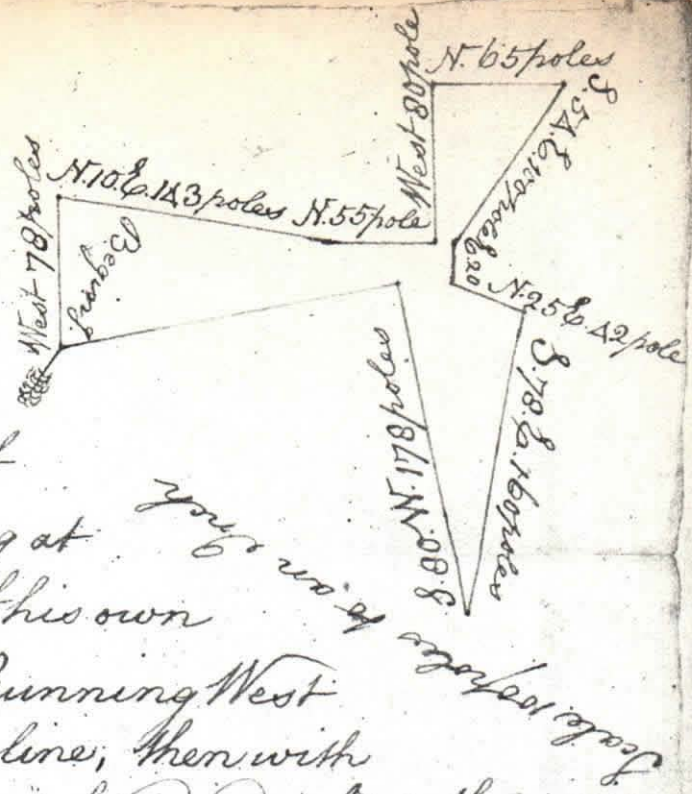 West 78 poles
Beging
N.10.E.143 poles
N.55 pole
West 80 pole
N.65 poles
S.54.E.100 poles
E 20
N.25 E.42 pole
S.78.E.160 poles
S.80.W.178 poles
Scale 100 poles to an Inch
g at
his own
unning West
line, then with